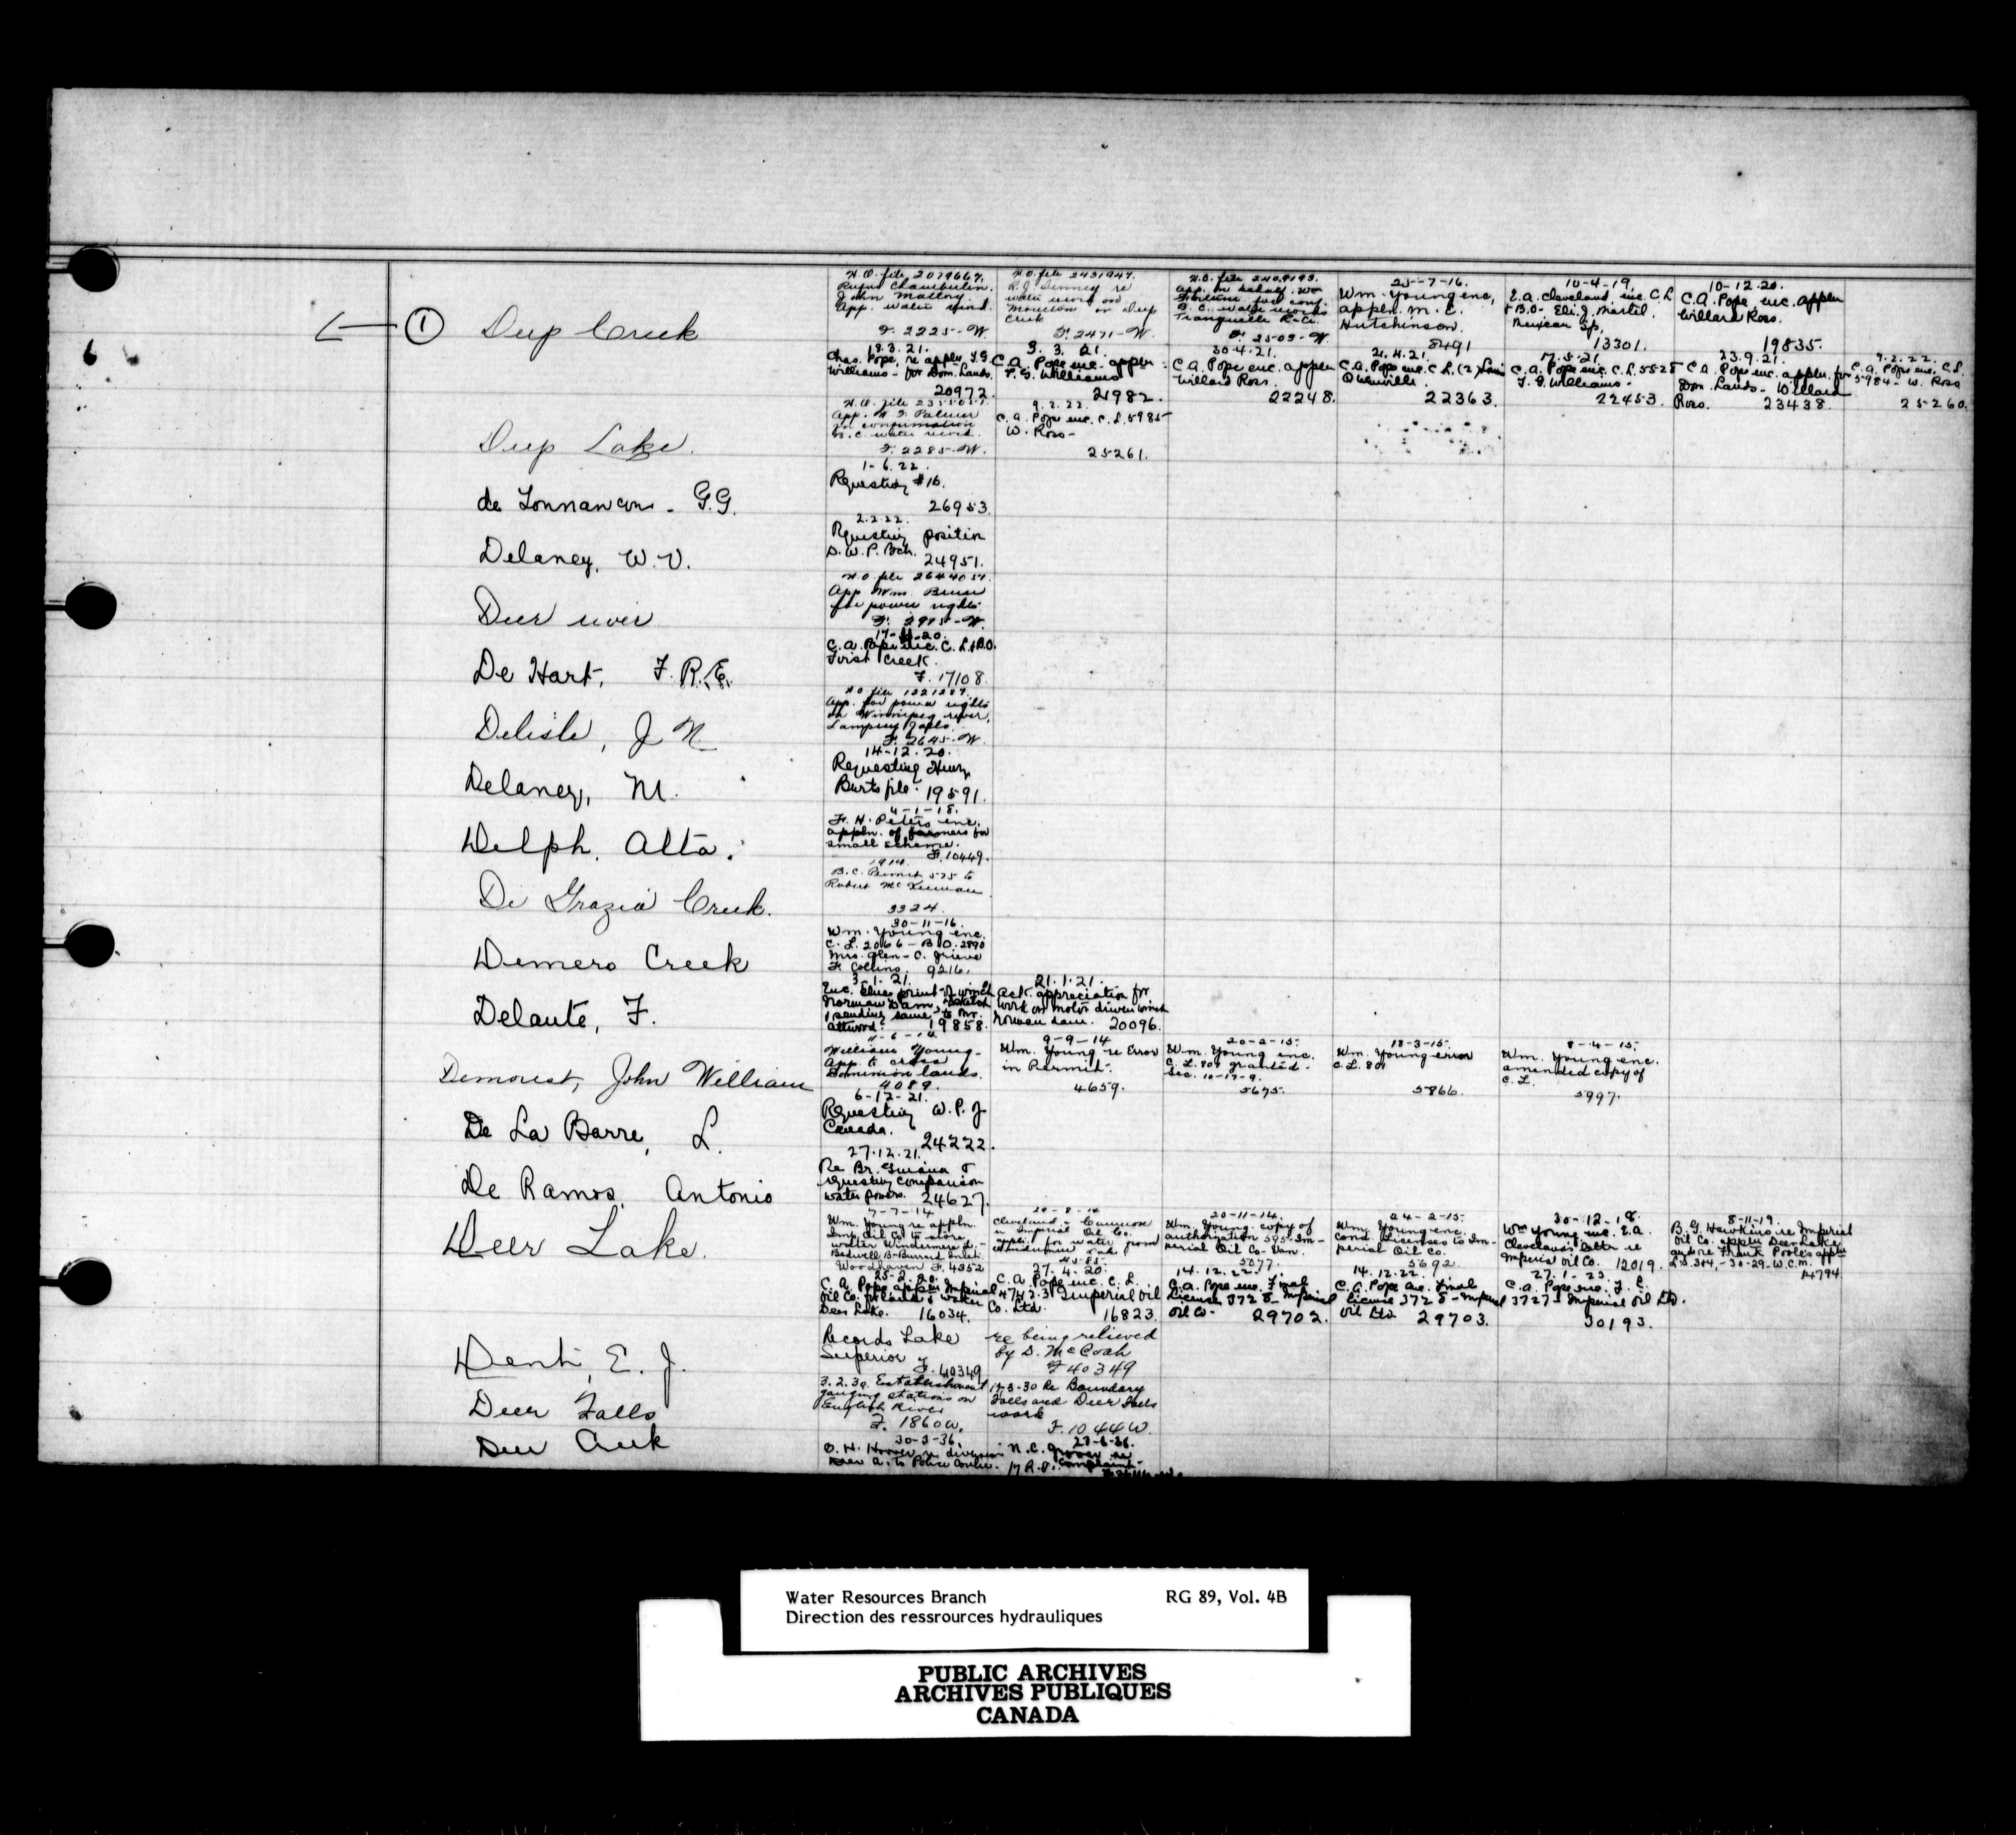 6
① Deep Creek
H.O. file 2079667.
Rufus Chamberlin.
John Mallory
App. water
F. 2225-W.
H.O. file 2431947.
R.J. re
water
on Deep
Creek
F. 2471-W.
H.O. file 2409193.
App. on behalf
for conf.
B.C. water
Tranquille
F. 2503-W.
25-7-16.
Wm. Young enc,
appln. M. C.
Hutchinson.
8491
10-4-19.
E.A. Cleveland, enc. C.L
+ B.O. Eli. J. Martel.
Sp.
13301.
10-12-20.
C.A. Pope, enc. appln
Willard Ross.
19835.
18.3.21.
Chas. Pope, re appln. T.G.
Williams - for Dom. Lands.
20972.
3.3.21.
C.A. Pope enc. appln.
T.G. Williams
21982.
30.4.21.
C.A. Pope enc. appln
Willard Ross.
22248.
21.4.21.
C.A. Pope enc. C.L. (2) Louis
Quenville.
22363.
17.5.21.
C.A. Pope enc. C.L. 5525
T.G. Williams -
22453.
23.9.21.
C.A. Pope enc. appln. for
Dom. Lands - Willard
Ross. 23438.
9.2.22.
C.A. Pope enc. C.L.
5984 - W. Ross
25260.
Deep Lake.
H.O. file
App. Palmer
in confirmation
B.C. water record.
F. 2285-W.
9.2.22.
C.A. Pope enc. C.L. 5985
W. Ross -
25261.
de - G.G.
1-6.22.
Requesting #16.
26953.
Delaney, W.V.
2.2.22.
Requesting position
D.W.P. Bch.
24951.
Deer river
H.O. file 2644051.
App. Wm.
for power rights.
De Hart, F.R.E.
C.A. Pope enc. C.L. & B.O.
Creek.
F. 17108.
Delisle, J N.
H.O. file
App. for power rights
on Winnipeg river,
F. 2645-W.
Delaney, M.
14-12.20.
Requesting Henry
Burts file. 19591.
Delph, Alta.
4-1-18.
F.H. Peters enc.
appln. of farmers for
small scheme.
F. 10449.
De Grazia Creek.
1914.
B.C. Permit 575 to
Robert
3324.
Demers Creek
30-11-16.
Wm. Young enc.
C.L. 2066 - B.O. 2890
Mrs. Glen - C. Grieve
F. Collins. 9216.
Delaute, F.
3.1.21.
Enc. blue print of winch
Norman Dam,
sending same to Mr.
Attwood. 19858.
21.1.21.
Ack. appreciation for
work on motor driven winch
Norman dam. 20096.
Demorest, John William
William Young -
App. to cross
Dominion lands.
4089.
9-9-14
Wm. Young re Error
in Permit.
4659.
20-2-15.
Wm. Young enc.
C.L. 801 granted -
Sec. 10-17-9.
5675.
18-3-15.
Wm. Young error
C.L. 801
5866.
8-4-15.
Wm. Young enc.
amended copy of
C.L.
5997.
De La Barre, L.
6-12-21.
Requesting W.P. of
Canada.
24222.
De Ramos, Antonio
27.12.21.
Re Br. Guiana &
requesting comparison
water powers. 24627.
Deer Lake.
7-7-14
Wm. Young re appln.
Imp. Oil Co. to store
water Windermere L. -
Bedwell B - Burrard Inlet.
Woodhaven F. 4352
Cleveland -
re Imperial Oil Co.
appli. for water from
20-11-14.
Wm. Young. copy of
authorization 595 Im-
perial Oil Co. Van.
5077.
24-2-15.
Wm. Young enc.
cond. Licenses to Im-
perial Oil Co.
5692.
30-12-18.
Wm Young enc. E.A.
Cleveland's letter re
Imperial Oil Co. 12019.
8-11-19.
B.G. Hawkins re Imperial
Oil Co. appln Deer Lake
and re Frank Poole's appln
L.S. 3+4, - 30-29-W.C.M.
14794
25-2-20.
C.A. Pope appln Imperial
Oil Co. for land & water
Deer Lake. 16034.
27.4.20.
C.A. Pope enc. C.L.
4742.3 Imperial Oil
Co. Ltd. 16823.
14.12.22.
C.A. Pope enc. Final
License 3728 - Imperial
Oil Co - 29702.
14.12.22.
C.A. Pope enc. Final
License 3728 - Imperial
Oil Ltd 29703.
27-1-23.
C.A. Pope enc. F.L.
3727 - Imperial Oil Ltd.
30193.
Dent, E. J.
Records Lake
Superior
F. 40349
re being relieved
by D. McCoah
F 40349
Deer Falls
3.2.30. Establishment
gauging stations on
English River
F. 1860W.
17-3-30 Re Boundary
Falls and Deer Falls
work
F. 1044W.
Deer Creek
30-3-36.
O.H. Hoover re diversion
Deer Cr. to Police Coulee.
27-6-36.
N.C. Grover re
Complaint -
Water Resources Branch RG 89, Vol. 4B
Direction des ressrources hydrauliques
PUBLIC ARCHIVES
ARCHIVES PUBLIQUES
CANADA